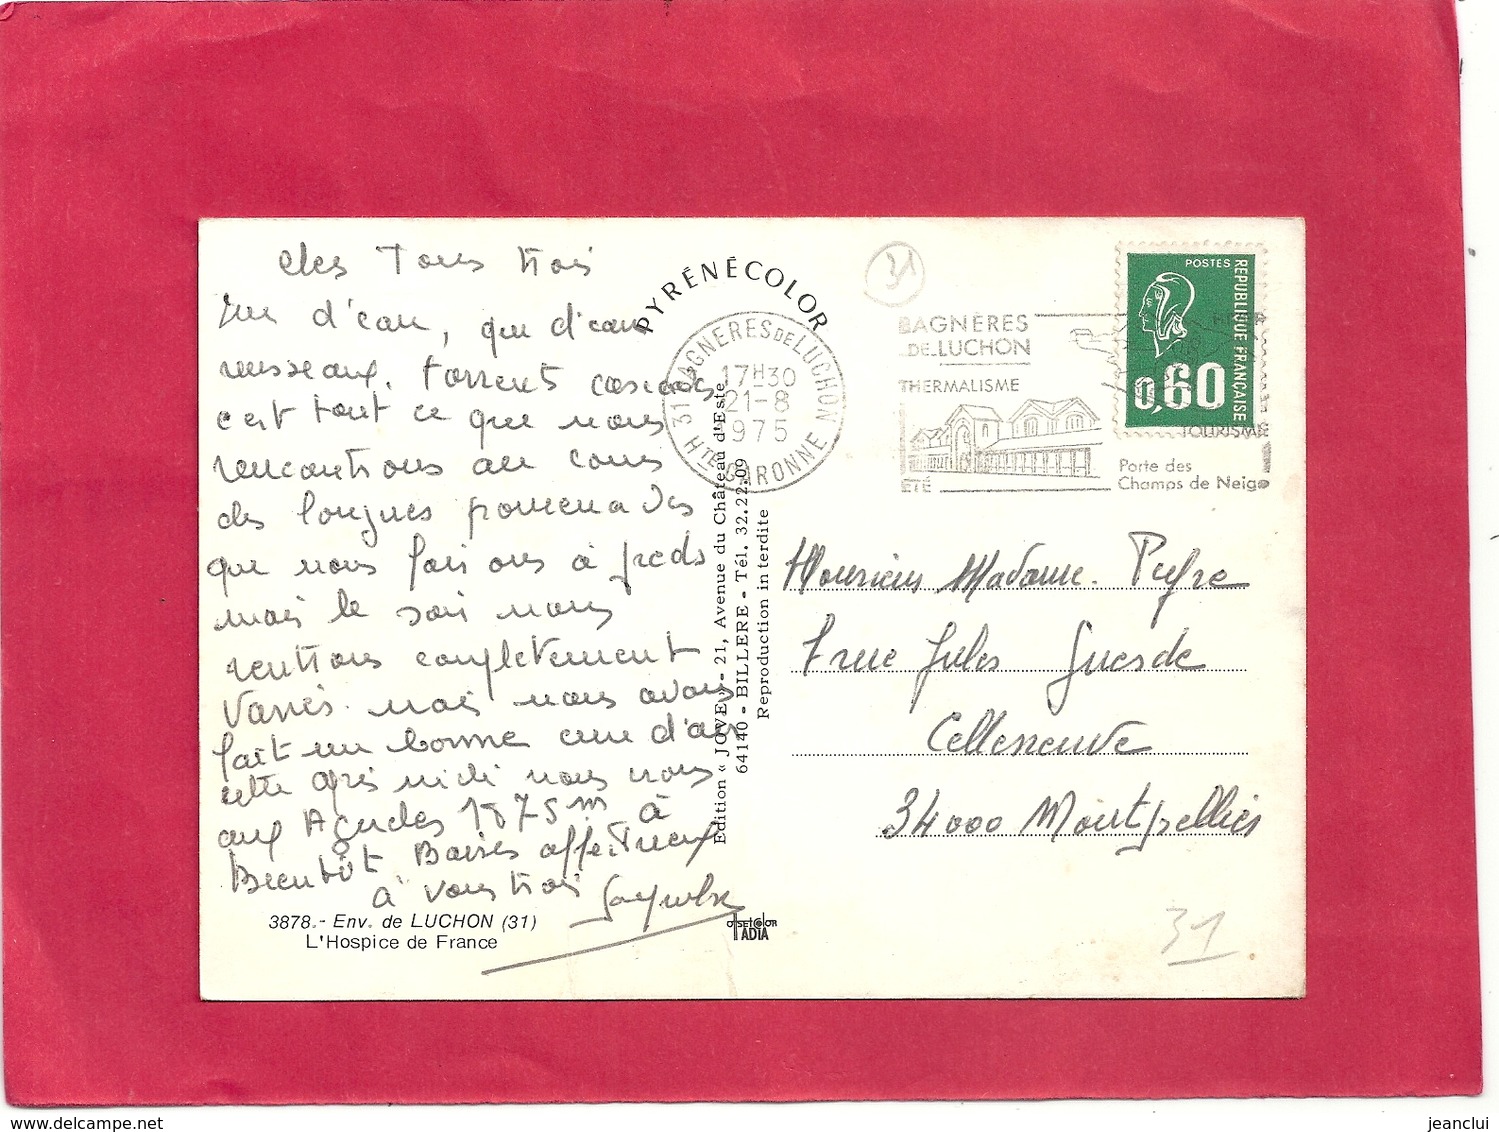 chers Tous trois
que d'eau, que d'eau
ruisseaux, torrents cascades
c'est tout ce que nous
rencontrons au cours
des longues promenades
que nous faisons à pieds
mais le soir nous
rentrons complètement
Vannés. mais nous avons
fait une bonne cure d'air
cette après midi nous
aux Agudes 1875 m à
Bientôt Baisers affectueux
à vous trois
3878.- Env. de LUCHON (31)
L'Hospice de France
PYRÉNÉCOLOR
Edition « JOVE » - 21, Avenue du Château d'Este
64140 - BILLERE - Tél. 32.22.09
Reproduction interdite
OFFSETCOLOR
TADIA
31
31 BAGNERES DE LUCHON
17H30
21-8
1975
HTE GARONNE
BAGNÈRES
DE-LUCHON
THERMALISME
ÉTÉ
HIVER
TOURISME
Porte des
Champs de Neige
POSTES
REPUBLIQUE FRANÇAISE
0,60
Monsieur Madame. Peyre
7 rue Jules Guesde
Celleneuve
34000 Montpellier
31
delcampe.net
jeanclui